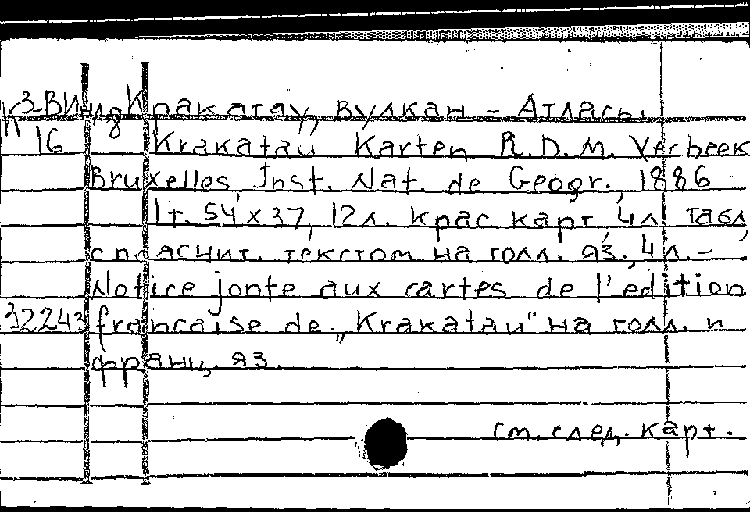 Кракатау, вулкан - Атласы.
16 8 Krakatau Karten R.D.M. Verbeek
Bruxelles, Inst. Nat. de Geogr., 1886
1 т. 54 x 37, 12 л. крас карт, 4 л. табл,
с пояснит. текстом на голл. яз., 4 л. -
Notice jonte aux cartes de l'edition
32243 francaise de „Krakatau" на голл. и
франц. яз.
см. след. карт.